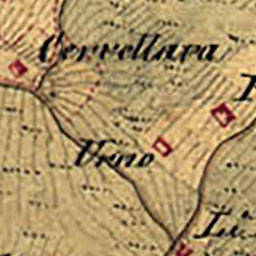 Cerrellara
Urno